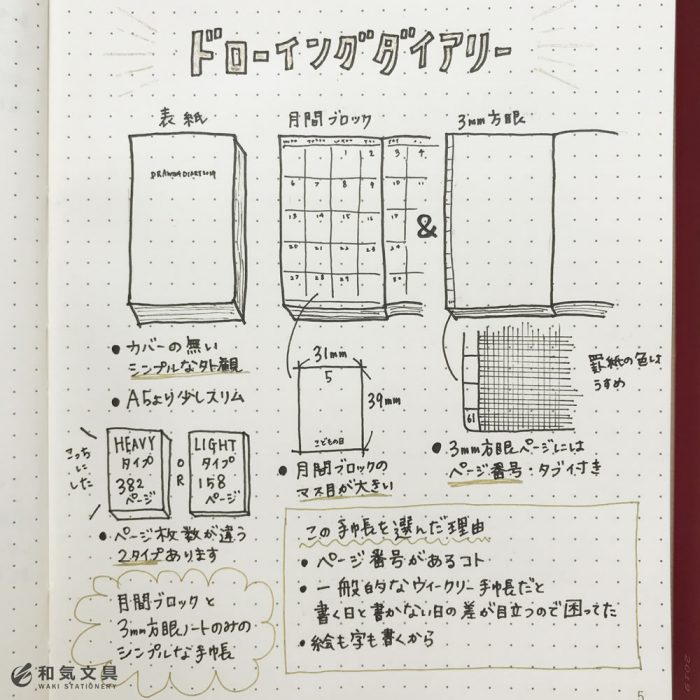 ドローイングダイアリー
表紙
DRAWING DIARY 2019
月間ブロック
1 2 3 4
6 7 8 9 10 11
13 14 15 16 17
20 21 22 23 24
27 28 29 30
&
3mm方眼
• カバーの無い
シンプルな外観
• A5より少しスリム
こっち
に
した
HEAVY
タイプ
382
ページ
OR
LIGHT
タイプ
158
ページ
• ページ枚数が違う
2タイプあります
31mm
5
39mm
こどもの日
• 月間ブロックの
マス目が大きい
61
罫紙の色は
うすめ
• 3mm方眼ページには
ページ番号・タブイ付き
月間ブロックと
3mm方眼ノートのみの
シンプルな手帳
この手帳を選んだ理由
• ページ番号があるコト
• 一般的なウィークリー手帳だと
書く日と書かない日の差が目立つので困ってた
• 絵も字も書くから
和気文具
WAKI STATIONERY
5